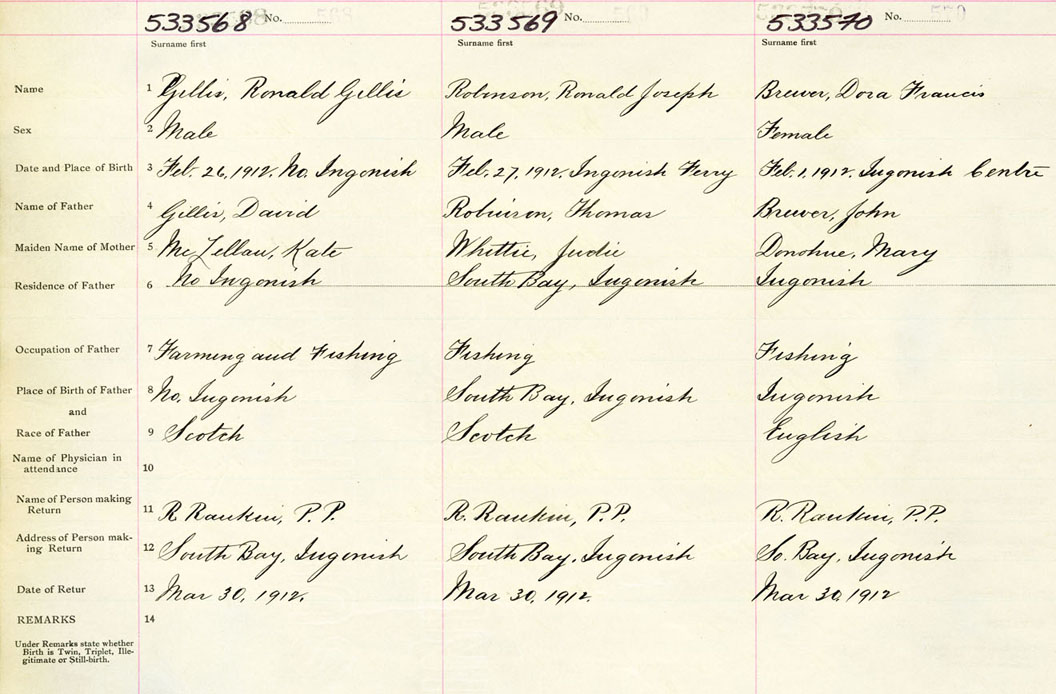 533568 No. 533569 No. 533570 No.
Surname first Surname first Surname first
Name 1 Gillis, Ronald Gillis Robinson, Ronald Joseph Brewer, Dora Francis
Sex 2 Male Male Female
Date and Place of Birth 3 Feb. 26, 1912. No. Ingonish Feb. 27, 1912. Ingonish Ferry Feb. 1, 1912. Ingonish Centre
Name of Father 4 Gillis, David Robinson, Thomas Brewer, John
Maiden Name of Mother 5 McLellan, Kate Whittie, Judie Donohue, Mary
Residence of Father 6 No Ingonish South Bay, Ingonish Ingonish
Occupation of Father 7 Farming and Fishing Fishing Fishing
Place of Birth of Father 8 No. Ingonish South Bay, Ingonish Ingonish
and
Race of Father 9 Scotch Scotch English
Name of Physician in
attendance 10
Name of Person making
Return 11 R Rankin, P.P. R. Rankin, P.P. R. Rankin, P.P.
Address of Person mak-
ing Return 12 South Bay, Ingonish South Bay, Ingonish So. Bay, Ingonish
Date of Retur 13 Mar 30, 1912. Mar 30, 1912. Mar 30, 1912
REMARKS 14
Under Remarks state whether
Birth is Twin, Triplet, Ille-
gitimate or Still-birth.